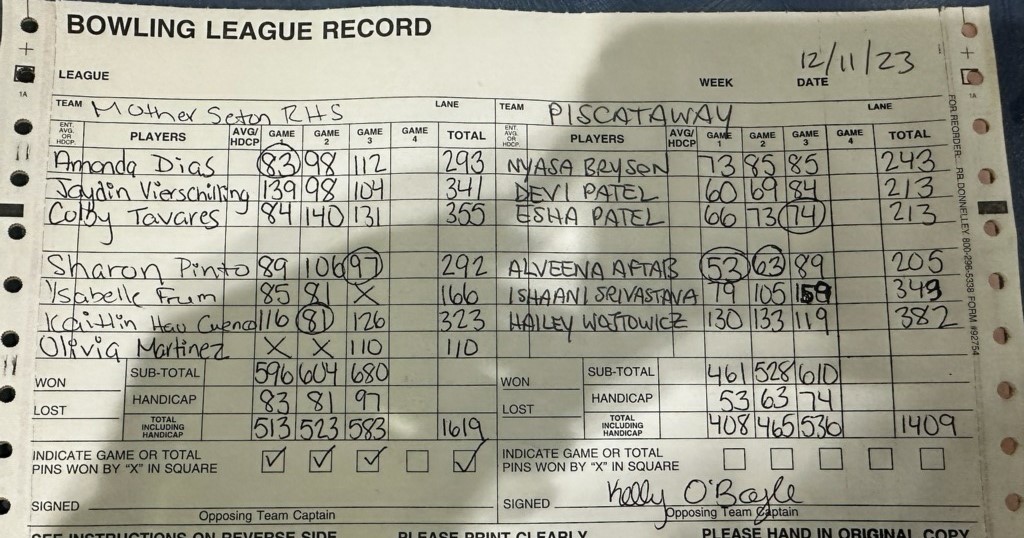 BOWLING LEAGUE RECORD
LEAGUE WEEK DATE 12/11/23
TEAM Mother Seton RHS LANE TEAM PISCATAWAY LANE
ENT. AVG. OR HDCP. PLAYERS AVG/HDCP GAME 1 GAME 2 GAME 3 GAME 4 TOTAL ENT. AVG. OR HDCP. PLAYERS AVG/HDCP GAME 1 GAME 2 GAME 3 GAME 4 TOTAL
Amanda Dias 83 98 112 293 NYASA BRYSON 73 85 85 243
Jaydin Vierschilling 139 98 104 341 DEVI PATEL 60 69 84 213
Colby Tavares 84 140 131 355 ESHA PATEL 66 73 74 213
Sharon Pinto 89 106 97 292 ALVEENA AFTAB 53 63 89 205
Ysabelle Frum 85 81 X 166 ISHAANI SRIVASTAVA 79 105 159 343
Kaitlin Hau Cuenco 116 81 126 323 HAILEY WOJTOWICZ 130 133 119 382
Olivia Martinez X X 110 110
WON SUB-TOTAL 596 604 680 WON SUB-TOTAL 461 528 610
LOST HANDICAP 83 81 97 LOST HANDICAP 53 63 74
TOTAL INCLUDING HANDICAP 513 523 583 1619 TOTAL INCLUDING HANDICAP 408 465 536 1409
INDICATE GAME OR TOTAL PINS WON BY "X" IN SQUARE INDICATE GAME OR TOTAL PINS WON BY "X" IN SQUARE
SIGNED SIGNED Kelly O'Boyle
Opposing Team Captain Opposing Team Captain
SEE INSTRUCTIONS ON REVERSE SIDE PLEASE PRINT CLEARLY PLEASE HAND IN ORIGINAL COPY
FOR REORDER: RR DONNELLEY 800-296-5338 FORM #92754
1A
1A